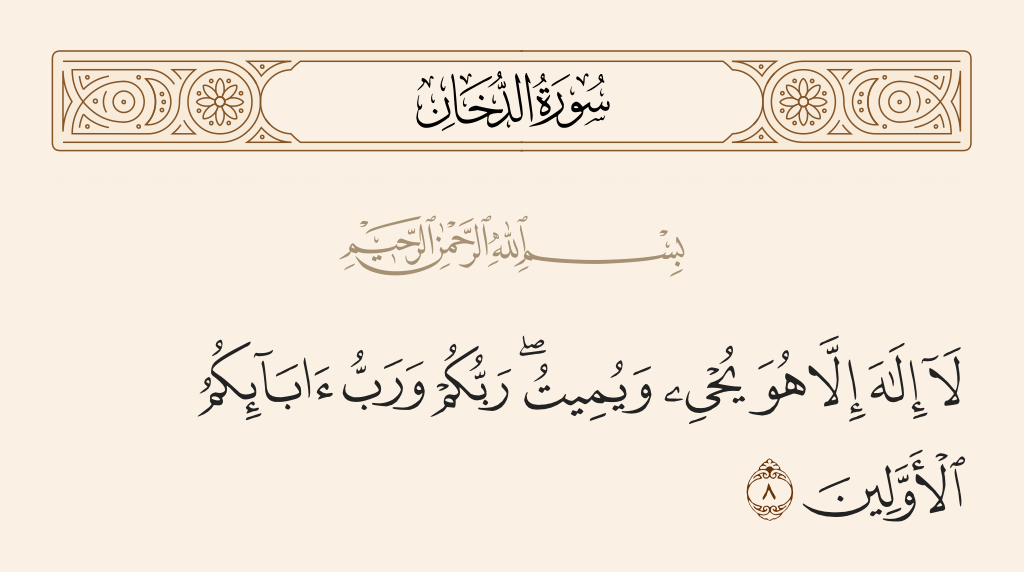 سُورَةُ الدُّخَانِ
بِسْمِ ٱللَّهِ ٱلرَّحْمَٰنِ ٱلرَّحِيمِ
لَآ إِلَٰهَ إِلَّا هُوَ يُحْىِۦ وَيُمِيتُ ۖ رَبُّكُمْ وَرَبُّ ءَابَآئِكُمُ
ٱلْأَوَّلِينَ ٨